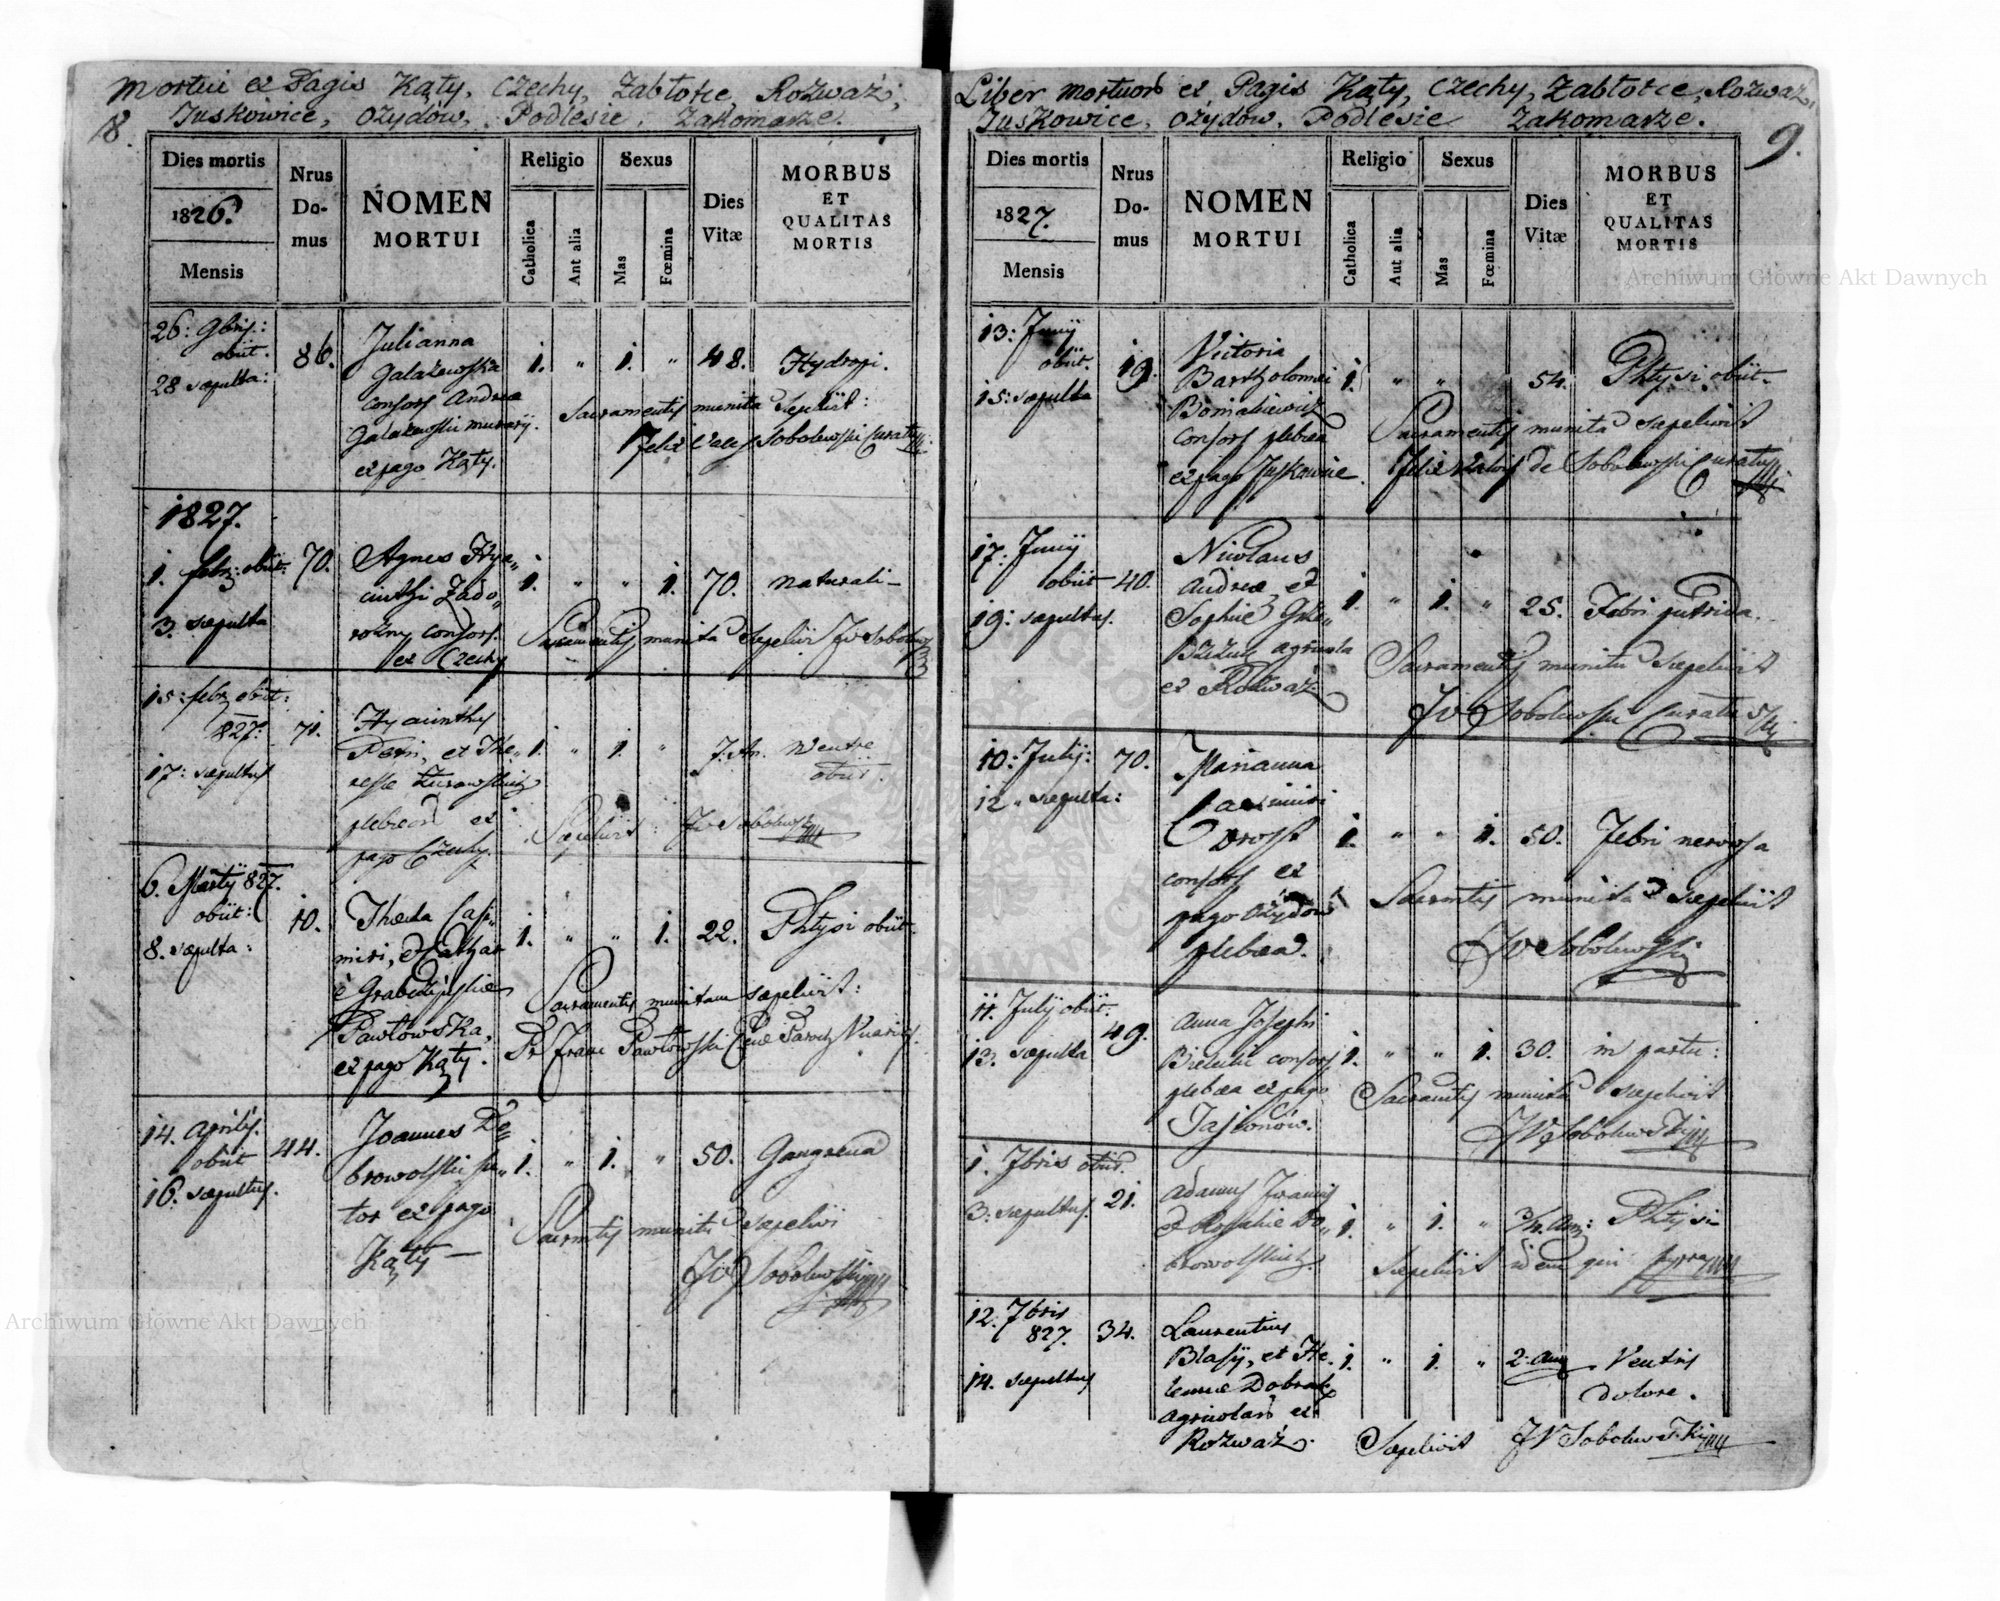 Mortui ex Pagis Kąty, Czechy, Zabłotce, Rożważ,
Juskowice, Ożydów, Podlesie, Zakomarze.
8.
Dies mortis
1826.
Mensis
Nrus
Do-
mus
NOMEN
MORTUI
Religio
Catholica
Aut alia
Sexus
Mas
Fœmina
Dies
Vitæ
MORBUS
ET
QUALITAS
MORTIS
26: 9bris:
obiit.
28 sepulta:
86.
Julianna
Galażewska
consors Andreæ
Galażewski murarij.
ex pago Kąty.
1. " 1. " 48. Hydropi.
Sacramentis munita sepeliit:
Felix Sobolewski Curatus
1827.
1. febr: obiit:
3. sepulta
70.
Agnes Hya„
cinthi Zado„
rożny consors.
ex Czechy
1. " " 1. 70. naturali
Sacramentis munita sepelivi JW Sobolews
15: febr obiit:
827.
17: sepultus
71.
Hyacinthus
Petri, et The„
resiæ Żurowskich
plebeor ex
pago Czechy.
1. " 1. " 7. An. Ventre
obiit.
Sepelivit: JW Sobolewski
6. Martij 827.
obiit:
8. sepulta:
10.
Thecla Casi„
miri, et Cathar
Pawłowska,
ex pago Kąty.
1. " " 1. 22. Phtysi obiit.
Sacramentis munitam sepelivit:
Franc Pawłowski
14. Aprilis.
obiit
16. sepultus.
44.
Joannes Do„
browolski su„
tor ex pago
Kąty
1. " 1. " 50. Gangrena
Sacrmtis munitum sepelivi
JW Sobolewski
Liber mortuor ex Pagis Kąty, Czechy, Zabłotce, Rożważ,
Juskowice, Ożydów, Podlesie Zakomarze.
9.
Dies mortis
1827.
Mensis
Nrus
Do-
mus
NOMEN
MORTUI
Religio
Catholica
Aut alia
Sexus
Mas
Fœmina
Dies
Vitæ
MORBUS
ET
QUALITAS
MORTIS
13: Junij
obiit.
15: sepulta
19.
Victoria
Bartholomei
consors plebea
ex pago Juskowice.
1. " " 54. Phtysi obiit.
Sacramentis munita sepelivit
Felix de Sobolewski Curatus
17. Junij
obiit
19: sepultus.
40.
Nicolaus
Andreæ, et
Sophiæ
agricola
ex Rożważ
1. " 1. " 25. Febri putrida.
Sacramentis munitu sepelivit
JW Sobolewski Curatus
10: Julij:
12 " sepulta:
70.
Marianna
Casimiri
consors ex
pago Ożydów
plebea.
1. " " 1. 50. Febri nervosa
Sacrmtis munita sepeliit
JW Sobolewski
11. Julij obiit.
13. sepulta
49.
Anna Josephi
consors
plebea ex pago
Jasionów.
1. " " 1. 30. in partu:
Sacramtis munita sepelivit
JW Sobolewski
1. 7bris obiit.
3: sepultus.
21.
Adamus
et Rosaliæ Do„
browolskich.
1. " 1. " Phtysi
Sepelivit idem qui supra
12. 7bris
827.
14. sepultus
34.
Laurentius
Blasij, et He„
lenæ
agricolar ex
Rożważ.
1. " 1. " 2. Ann Ventris
dolore.
Sepelivit JW Sobolewski
Archiwum Główne Akt Dawnych
Archiwum Główne Akt Dawnych